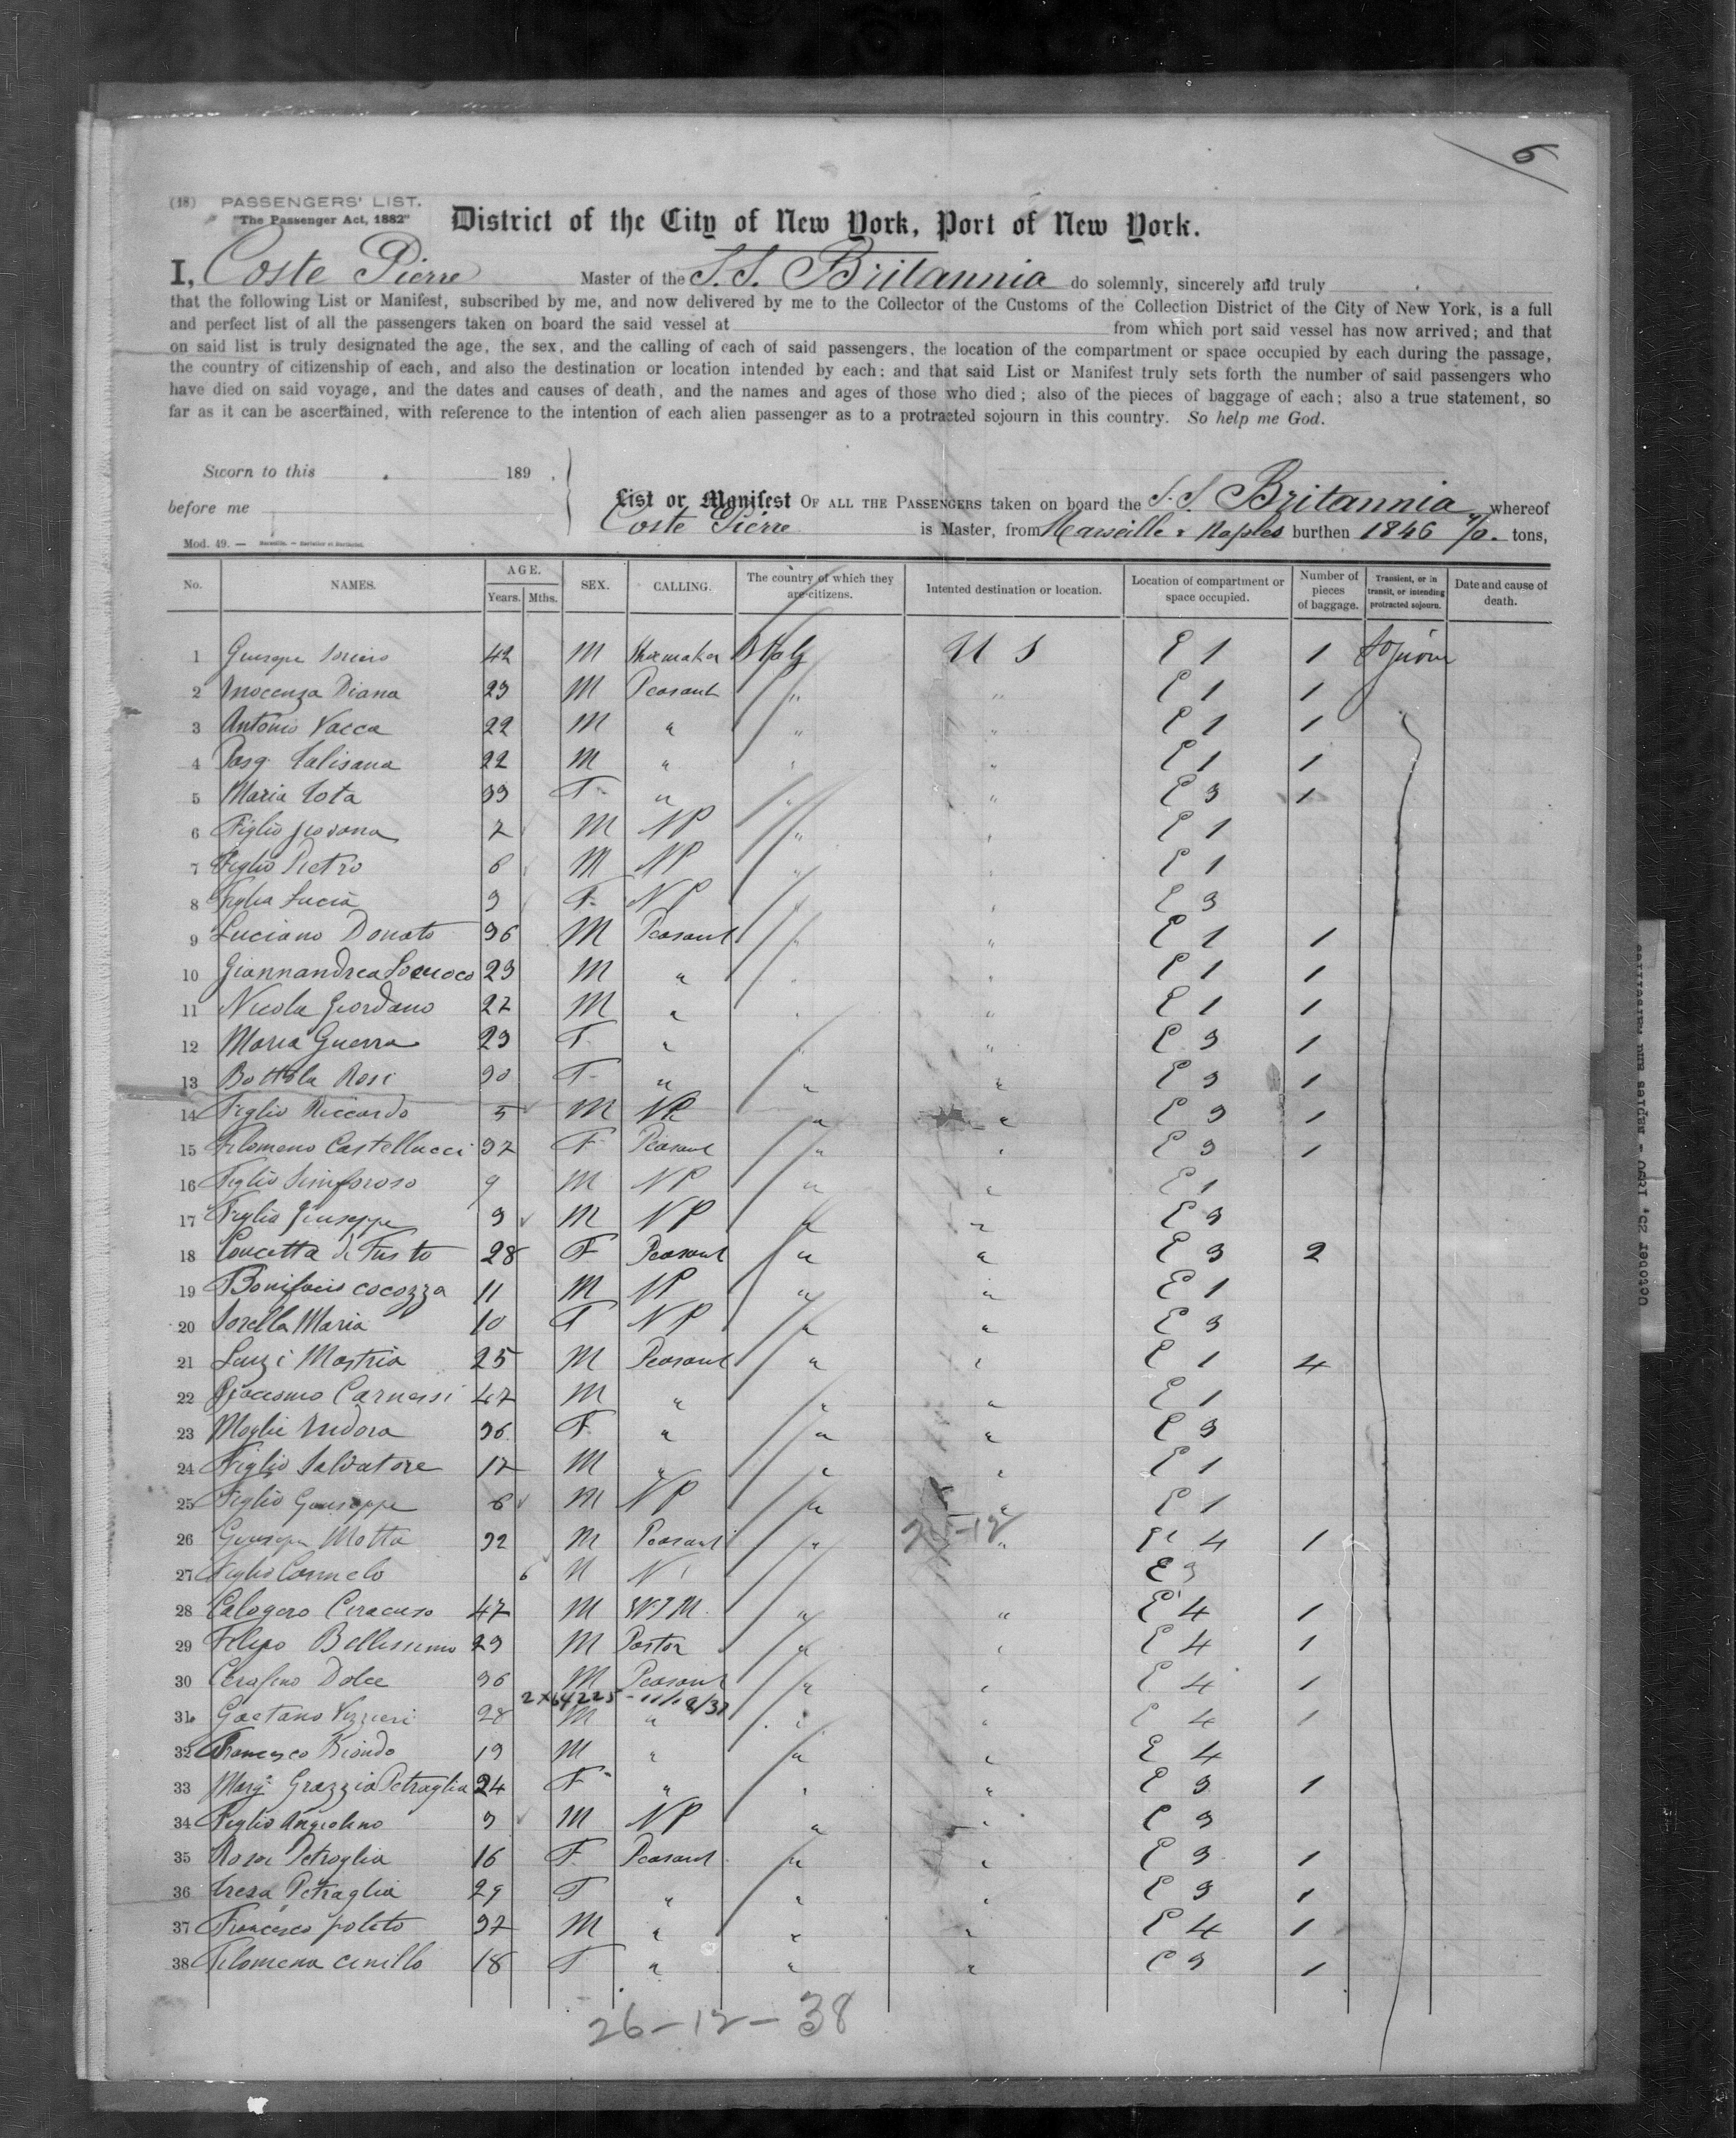 6
(18) PASSENGERS' LIST.
"The Passenger Act, 1882"
District of the City of New York, Port of New York.
I, Coste Pierre Master of the S.S. Britannia do solemnly, sincerely and truly
that the following List or Manifest, subscribed by me, and now delivered by me to the Collector of the Customs of the Collection District of the City of New York, is a full
and perfect list of all the passengers taken on board the said vessel at from which port said vessel has now arrived; and that
on said list is truly designated the age, the sex, and the calling of each of said passengers, the location of the compartment or space occupied by each during the passage,
the country of citizenship of each, and also the destination or location intended by each; and that said List or Manifest truly sets forth the number of said passengers who
have died on said voyage, and the dates and causes of death, and the names and ages of those who died; also of the pieces of baggage of each; also a true statement, so
far as it can be ascertained, with reference to the intention of each alien passenger as to a protracted sojourn in this country. So help me God.
Sworn to this 189 .
before me
List or Manifest OF ALL THE PASSENGERS taken on board the S.S. Britannia whereof
Coste Pierre is Master, from Marseille & Naples burthen 1846 tons,
Mod. 49. —
No. NAMES. AGE. Years. Mths. SEX. CALLING. The country of which they are citizens. Intented destination or location. Location of compartment or space occupied. Number of pieces of baggage. Transient, or in transit, or intending protracted sojourn. Date and cause of death.
1 42 M Shoemaker Italy U S E 1 1
2 Inocenza Diana 23 M Peasant " " E 1 1
3 Antonio Vacca 22 M " " " E 1 1
4 Pasq. 22 M " " " E 1 1
5 Maria 33 F " " " E 3 1
6 Figlio 7 M NP " " E 1
7 Figlio Pietro 6 M NP " " E 1
8 Figlia Lucia 3 F NP " " E 3
9 Luciano Donato 36 M Peasant " " E 1 1
10 Giannandrea 23 M " " " E 1 1
11 Nicola Giordano 27 M " " " E 1 1
12 Maria Guerra 23 F " " " E 3 1
13 Rosi 30 F " " " E 3 1
14 Figlio Riccardo 5 M NP " " E 3 1
15 Filomeno Castellucci 37 F Peasant " " E 3 1
16 Figlio Sinforoso 9 M NP " " E 1
17 Figlio Giuseppe 3 M NP " " E 3
18 Concetta di Fusto 28 F Peasant " " E 3 2
19 Bonifacio cocozza 11 M NP " " E 1
20 Sorella Maria 10 F NP " " E 3
21 Luigi Mastria 25 M Peasant " " E 1 4
22 Giacomo 47 M " " " E 1
23 Moglie 36 F " " " E 3
24 Figlio Salvatore 17 M " " " E 1
25 Figlio Giuseppe 6 M NP " " E 1
26 Giuseppe Motta 32 M Peasant " " E 4 1
27 Figlio Carmelo 6 E 3
28 Calogero Ceracuso 47 M " " E 4 1
29 Filipo Bellissimo 23 M " " E 4 1
30 Cerafino Dolce 36 M Peasant " " E 4 1
2 X 64225
31 Gaetano 28 M " " " E 4 1
32 Francesco Biondo 19 M " " " E 4
33 Grazzia Petraglia 24 F " " " E 3 1
34 Figlio Angiolino 3 M NP " " E 3
35 Rosa Petroglia 16 F Peasant " " E 3 1
36 Petraglia 29 F " " " E 3 1
37 Francesco poleto 37 M " " " E 4 1
38 Filomena 18 F " " " E 3 1
26-12-38
October 25, 1890 - Naples and Marseilles